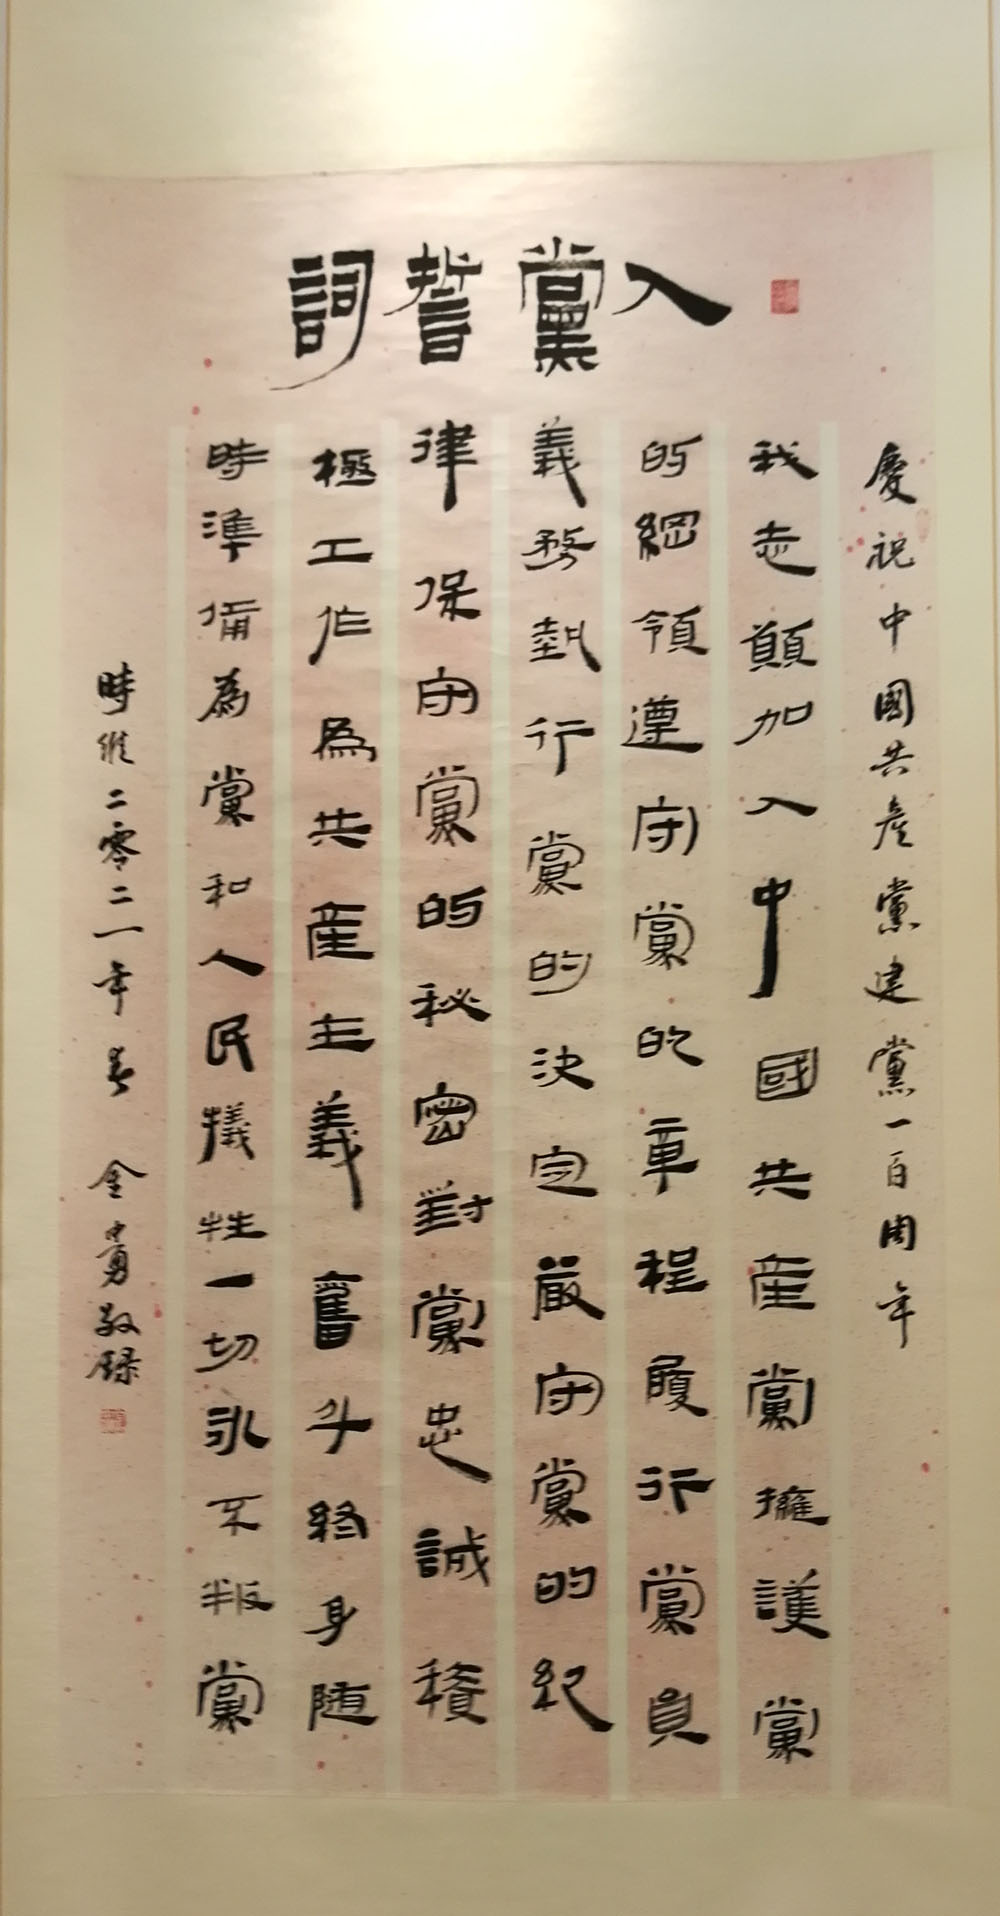 入黨誓詞
慶祝中國共產黨建黨一百周年
我志願加入中國共產黨擁護黨
的綱領遵守黨的章程履行黨員
義務執行黨的決定嚴守黨的紀
律保守黨的秘密對黨忠誠積
極工作為共產主義奮斗終身随
時準備為黨和人民犧牲一切永不叛黨
時維二零二一年春 金勇敬錄